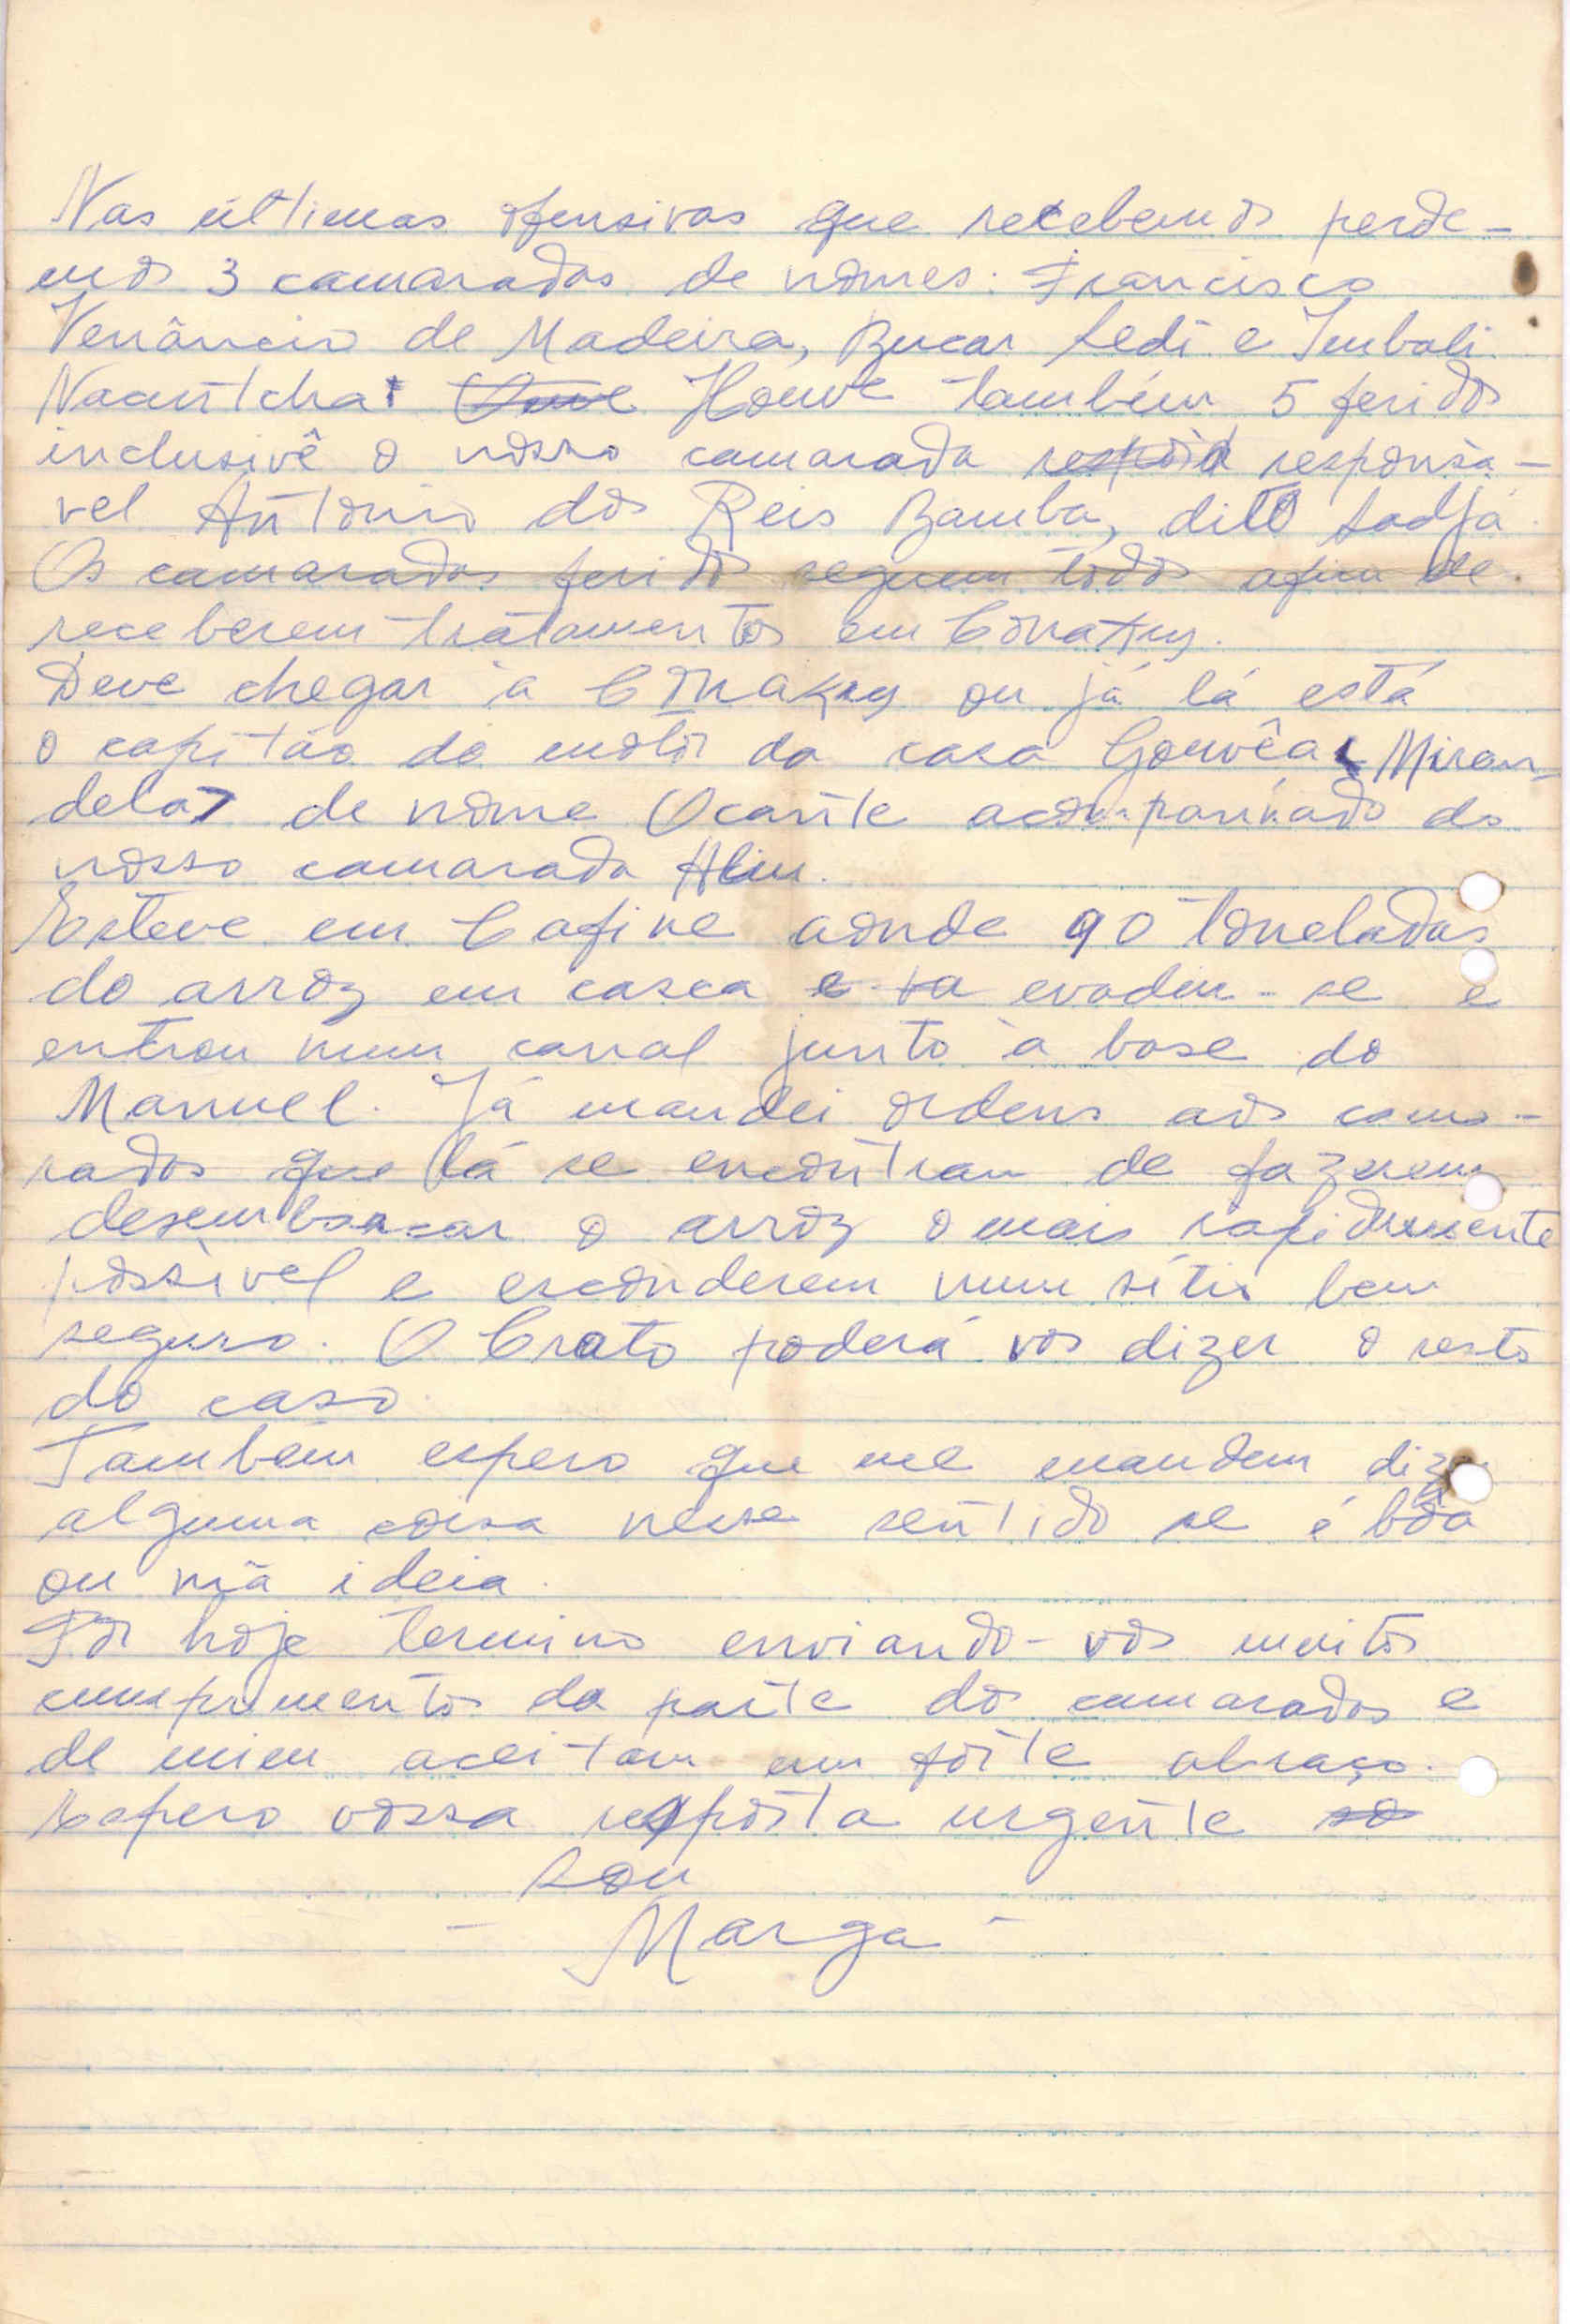 Nas últimas ofensivas que recebemos perde-
mos 3 camaradas de nomes: Francisco
Venâncio de Madeira, Bucar Sedi e Imbali
Nacuntcha. Houve também 5 feridos
inclusivê o nosso camarada responsá-
vel António dos Reis Bamba, dito Sadjá.
Os camaradas feridos seguem todos afim de
receberem tratamentos em Conakry.
Deve chegar à Conakry ou já lá está
o capitão do motôr da casa Gouvêa "Miran-
dela" de nome Ocante acompanhado do
nosso camarada
Esteve em Cafine aonde 90 toneladas
do arroz em casca evadiu-se e
entrou num canal junto à base do
Manuel. Já mandei ordens aos cama-
radas que lá se encontram de fazerem
desembarcar o arroz o mais rapidamente
possivel e esconderem num sítio bem
seguro. O Crato poderá vos dizer o resto
do caso.
Também espero que me mandem dizer
alguma coisa nesse sentido se é bôa
ou má ideia.
Por hoje termino enviando-vos muitos
cumprimentos da parte dos camaradas e
de mim aceitam um forte abraço.
Espero vossa resposta urgente
Sou
- Marga -